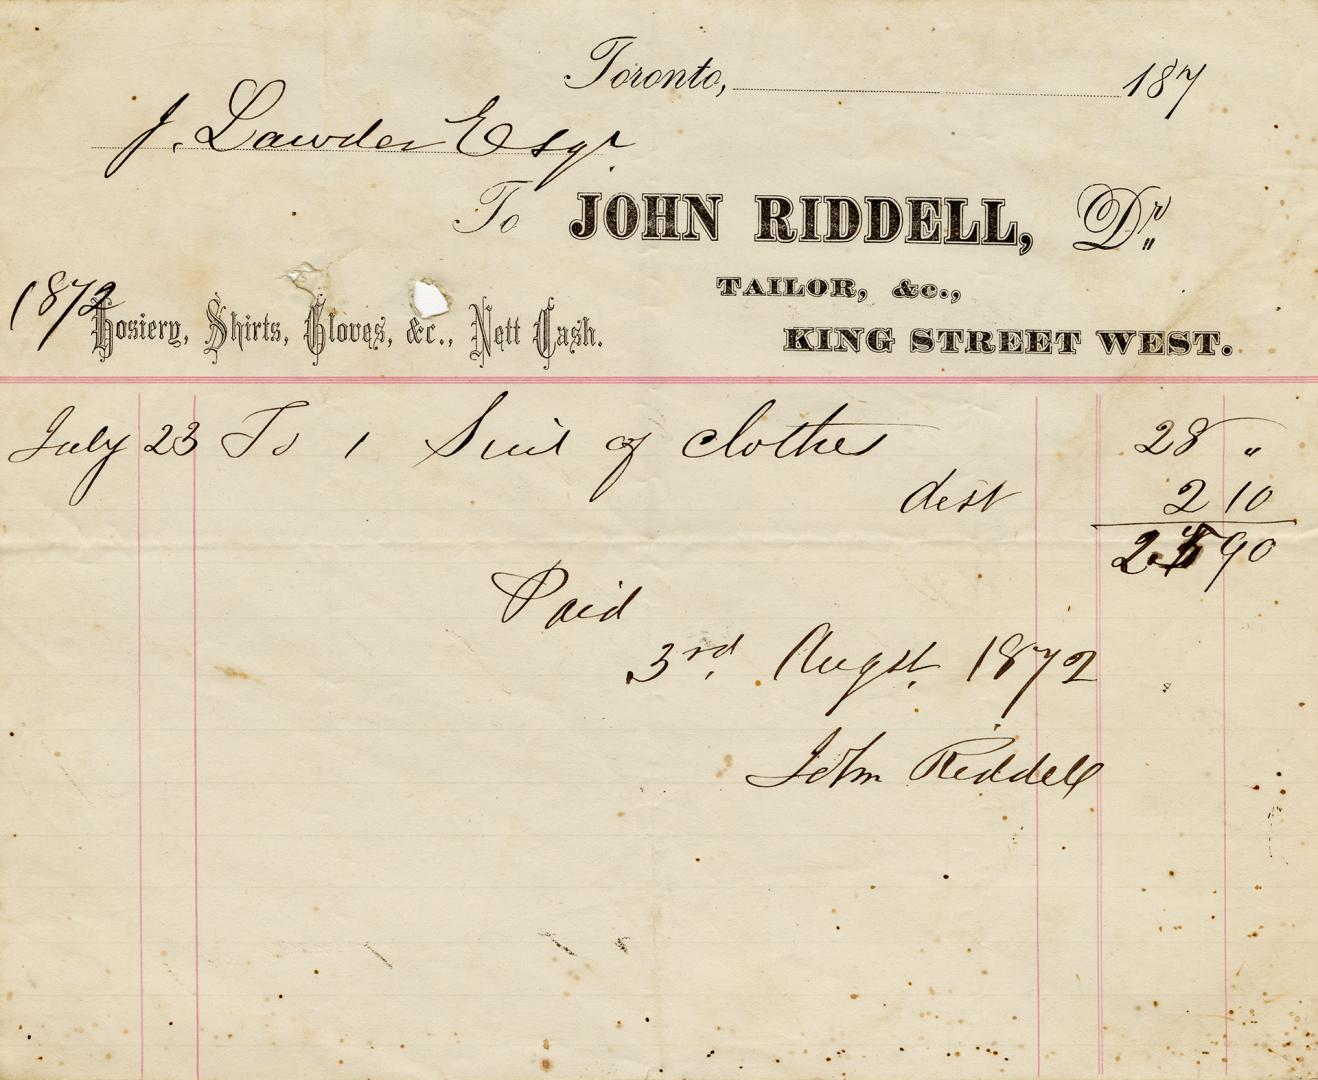 Toronto, 187
J. Lawder Esqr
To JOHN RIDDELL, Dr
TAILOR, &c.,
1872
Hosiery, Shirts, Gloves, &c., Nett Cash.
KING STREET WEST.
July 23 To 1 Suit of clothes 28 "
dist 2 10
25 90
Paid
3rd. Augst. 1872
John Riddell